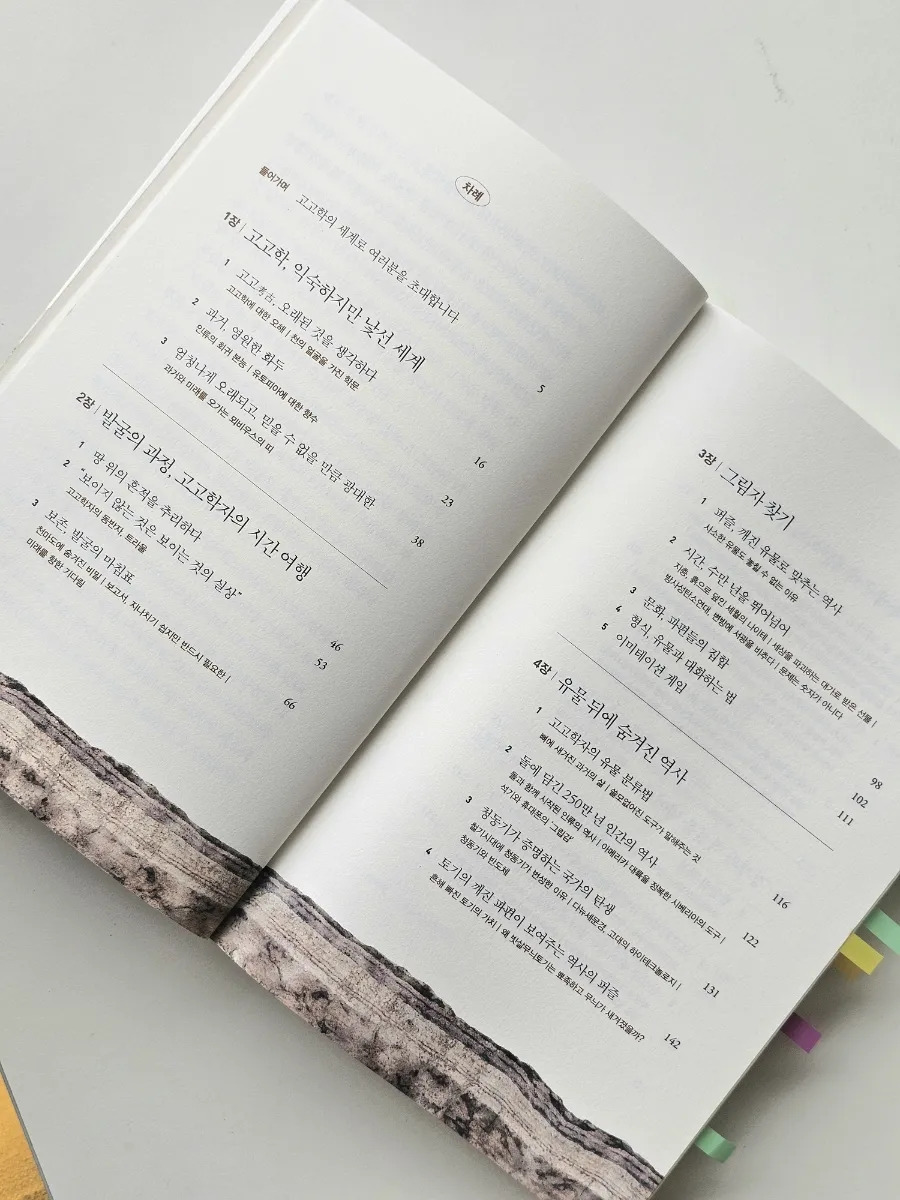 차례
들어가며 고고학의 세계로 여러분을 초대합니다 5
1장 | 고고학, 익숙하지만 낯선 세계
1 고고考古, 오래된 것을 생각하다 16
고고학에 대한 오해 | 천의 얼굴을 가진 학문
2 과거, 영원한 화두 23
인류의 회귀 본능 | 유토피아에 대한 향수
3 엄청나게 오래되고, 믿을 수 없을 만큼 광대한 38
과거와 미래를 오가는 뫼비우스의 띠
2장 | 발굴의 과정, 고고학자의 시간 여행
1 땅 위의 흔적을 추리하다 46
2 "보이지 않는 것은 보이는 것의 실상" 53
고고학자의 동반자, 트라울
3 보존, 발굴의 마침표 66
천마도에 숨겨진 비밀 | 보고서, 지나치기 쉽지만 반드시 필요한 |
미래를 향한 기다림
3장 | 그림자 찾기
1 퍼즐, 깨진 유물로 맞추는 역사
사소한 유물도 놓칠 수 없는 이유
2 시간, 수만 년을 뛰어넘어
지층, 흙으로 덮인 세월의 나이테 | 세상을 파괴하는 대가로 받은 선물 |
방사성탄소연대, 변방에 서광을 비추다 | 문제는 숫자가 아니다
3 문화, 파편들의 집합 98
4 형식, 유물과 대화하는 법 102
5 이미테이션 게임 111
4장 | 유물 뒤에 숨겨진 역사
1 고고학자의 유물 분류법 116
뼈에 새겨진 과거의 삶 | 쓸모없어진 도구가 말해주는 것
2 돌에 담긴 250만 년 인간의 역사 122
돌과 함께 시작된 인류의 역사 | 아메리카 대륙을 정복한 시베리아의 도구 |
석기와 휴대폰의 '그립감'
3 청동기가 증명하는 국가의 탄생 131
철기시대에 청동기가 번성한 이유 | 다뉴세문경, 고대의 하이테크놀로지 |
청동기와 반도체
4 토기의 깨진 파편이 보여주는 역사의 퍼즐 142
흔해 빠진 토기의 가치 | 왜 빗살무늬토기는 뾰족하고 무늬가 새겨졌을까?